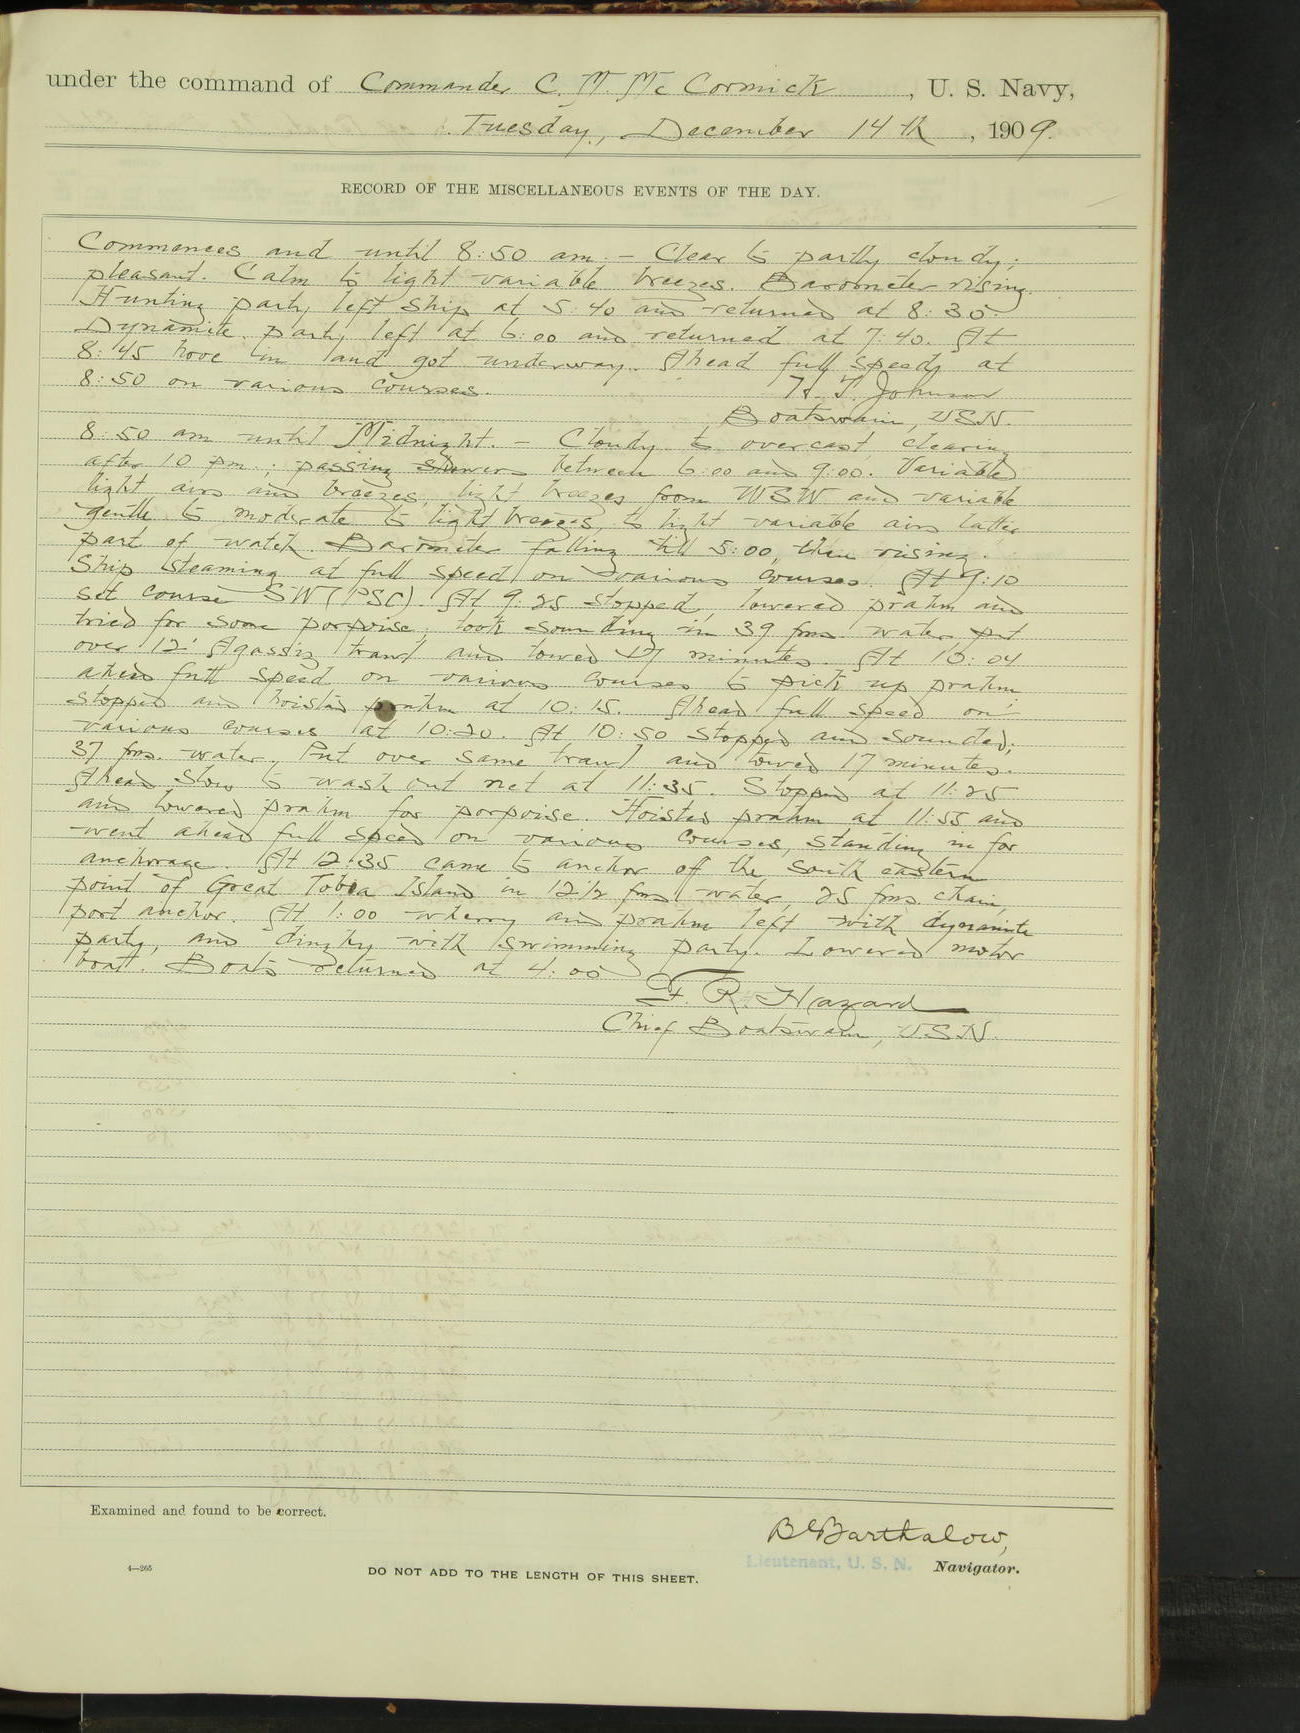 under the command of Commander C. M. McCormick, U. S. Navy,
Tuesday, December 14th, 1909.
RECORD OF THE MISCELLANEOUS EVENTS OF THE DAY.
Commences and until 8:50 am. - Clear to partly cloudy;
pleasant. Calm to light variable breezes. Barometer rising.
Hunting party left ship at 5:40 and returned at 8:30.
Dynamite party left at 6:00 and returned at 7:40. At
8:45 hove in and got underway. Ahead full speed at
8:50 on various courses.
H. T. Johnson
Boatswain, USN.
8:50 am until Midnight. - Cloudy to overcast, clearing
after 10 pm.; passing showers between 6:00 and 9:00. Variable
light airs and breezes, light breezes from WSW and variable
gentle to moderate to light breezes, to light variable airs latter
part of watch. Barometer falling till 5:00, then rising.
Ship steaming at full speed on various courses. At 9:10
set course SW (PSC). At 9:25 stopped, lowered prahm and
tried for some porpoise; took sounding in 39 fms. water, put
over 12' Agassiz trawl and towed 17 minutes. At 10:04
ahead full speed on various courses to pick up prahm
stopped and hoisted prahm at 10:15. Ahead full speed on
various courses at 10:20. At 10:50 stopped and sounded;
37 fms. water. Put over same trawl and towed 17 minutes.
Ahead slow to wash out net at 11:35. Stopped at 11:25
and lowered prahm for porpoise. Hoisted prahm at 11:55 and
went ahead full speed on various courses, standing in for
anchorage. At 12:35 came to anchor off the south eastern
point of Great Tobea Island in 12 1/2 fms water, 25 fms. chain,
port anchor. At 1:00 wherry and prahm left with dynamite
party, and dinghy with swimming party. Lowered motor
boat. Boats returned at 4:00
F. R. Hazard
Chief Boatswain, USN.
Examined and found to be correct.
B Barthalow,
Lieutenant, U. S. N. Navigator.
4—265
DO NOT ADD TO THE LENGTH OF THIS SHEET.